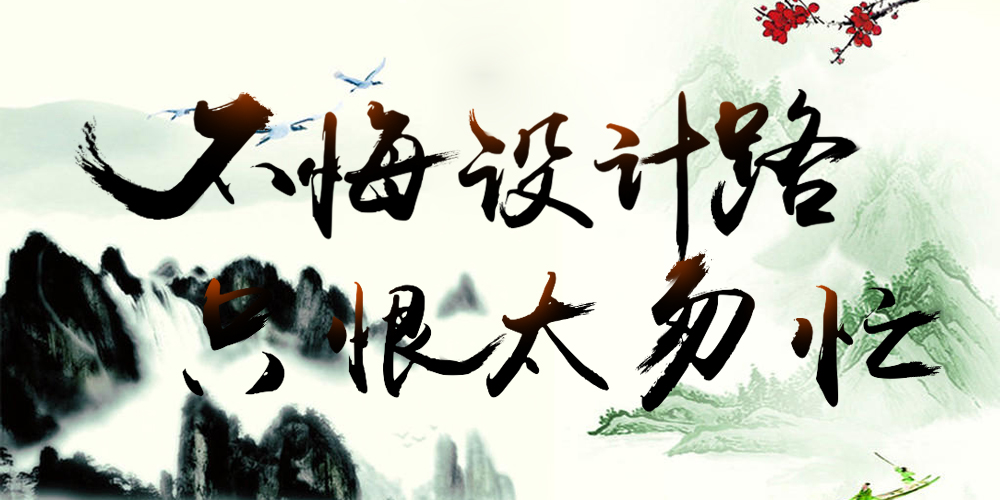 不悔设计路
只恨太勿忙